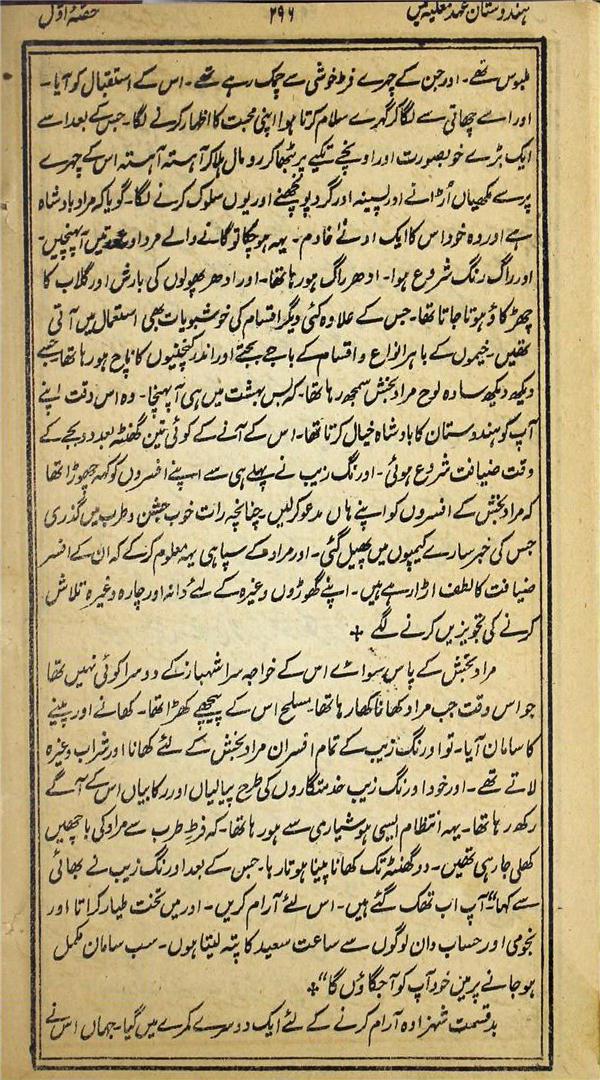 ہندوستان عہد مغلیہ میں ۲۹۶ حصّہ اوّل
ملبوس تھے۔ اور جن کے چہرے فرط خوشی سے چمک رہے تھے۔ اس کے استقبال کو آیا۔
اور اسے چھاتی سے لگا کر گہرے سلام کرتا ہوا اپنی محبت کا اظہار کرنے لگا۔ جس کے بعد اسے
ایک بڑے خوبصورت اور اونچے تکیے پر بٹھا کر رومال ہلا کر آہستہ آہستہ اس کے چہرے
پر سے مکھیاں اُڑانے اور پسینہ اور گرد پونچھنے اور یوں سلوک کرنے لگا۔ گویا کہ مراد بادشاہ
ہے اور وہ خود اس کا ایک ادنےٰ خادم۔ یہہ ہو چکا تو گانے والے مرد اور عورتیں آ پہنچیں۔
اور راگ رنگ شروع ہوا۔ ادھر راگ ہو رہا تھا۔ اور ادھر پھولوں کی بارش اور گلاب کا
چھڑکاؤ ہوتا جاتا تھا۔ جس کے علاوہ کئی دیگر اقسام کی خوشبویات بھی استعمال میں آتی
تھیں۔ خیموں کے باہر انواع و اقسام کے باجے بجتے اور اندر کنچنیوں کا ناچ ہو رہا تھا جسے
دیکھ دیکھ سادہ لوح مراد بخش سمجھ رہا تھا۔ کہ بس بہشت میں ہی آ پہنچا۔ وہ اس وقت اپنے
آپ کو ہندوستان کا بادشاہ خیال کرتا تھا۔ اس کے آنے کے کوئی تین گھنٹہ بعد دو بجے کے
وقت ضیافت شروع ہوئی۔ اورنگ زیب نے پہلے ہی سے اپنے افسروں کو کہہ چھوڑا تھا
کہ مراد بخش کے افسروں کو اپنے ہاں مدعو کرلیں۔ چنانچہ رات خوب جشن و طرب میں گذری
جس کی خبر سارے کیمپوں میں پھیل گئی۔ اور مراد کے سپاہی یہہ معلوم کر کے کہ ان کے افسر
ضیافت کا لطف اڑا رہے ہیں۔ اپنے گھوڑوں وغیرہ کے لئے دانہ اور چارہ وغیرہ تلاش
کرنے کی تجویزیں کرنے لگے
مراد بخش کے پاس سوائے اس کے خواجہ سرا شہباز کے دوسرا کوئی نہیں تھا
جو اس وقت جب مراد کھانا کھا رہا تھا۔ مسلح اس کے پیچھے کھڑا تھا۔ کھانے اور پینے
کا سامان آیا۔ تو اورنگ زیب کے تمام افسران مراد بخش کے لئے کھانا اور شراب وغیرہ
لاتے تھے۔ اور خود اورنگ زیب خدمتگاروں کی طرح پیالیاں اور رکابیاں اس کے آگے
رکھ رہا تھا۔ یہہ انتظام ایسی ہوشیاری سے ہو رہا تھا۔ کہ فرط طرب سے مراد کی باچھیں
کھلی جا رہی تھیں۔ دو گھنٹہ تک کھانا پینا ہوتا رہا۔ جس کے بعد اورنگ زیب نے بھائی
سے کہا۔ "آپ اب تھک گئے ہیں۔ اس لئے آرام کریں۔ اور میں تخت طیار کراتا اور
نجومی اور حساب دان لوگوں سے ساعت سعید کا پتہ لیتا ہوں۔ سب سامان مکمل
ہو جانے پر میں خود آپ کو آ جگاؤں گا"
بدقسمت شہزادہ آرام کرنے کے لئے ایک دوسرے کمرے میں گیا۔ جہاں اس نے